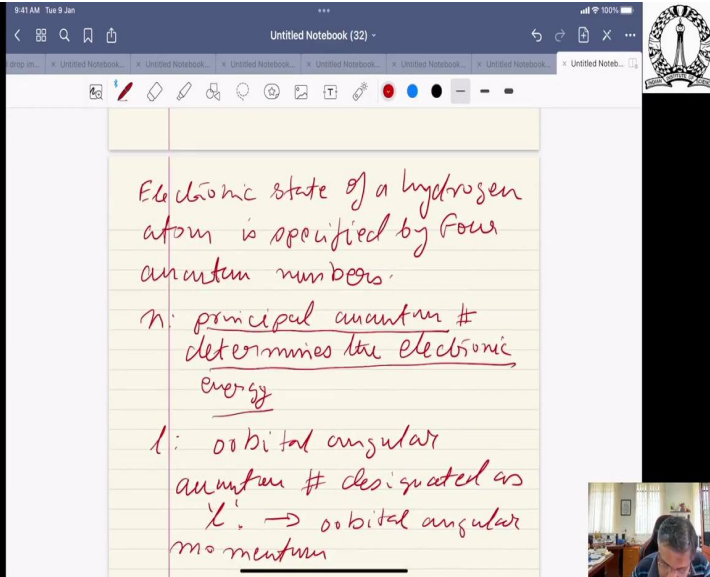 9:41 AM Tue 9 Jan
100%
Untitled Notebook (32)
d drop on...
× Untitled Notebook...
× Untitled Notebook...
× Untitled Notebook...
× Untitled Notebook...
× Untitled Notebook...
× Untitled Notebook...
× Untitled Noteb...
Electronic state of a hydrogen
atom is specified by Four
quantum numbers.
n: principal quantum #
determines the electronic
energy
l: orbital angular
quantum # designated as
'l'. → orbital angular
momentum